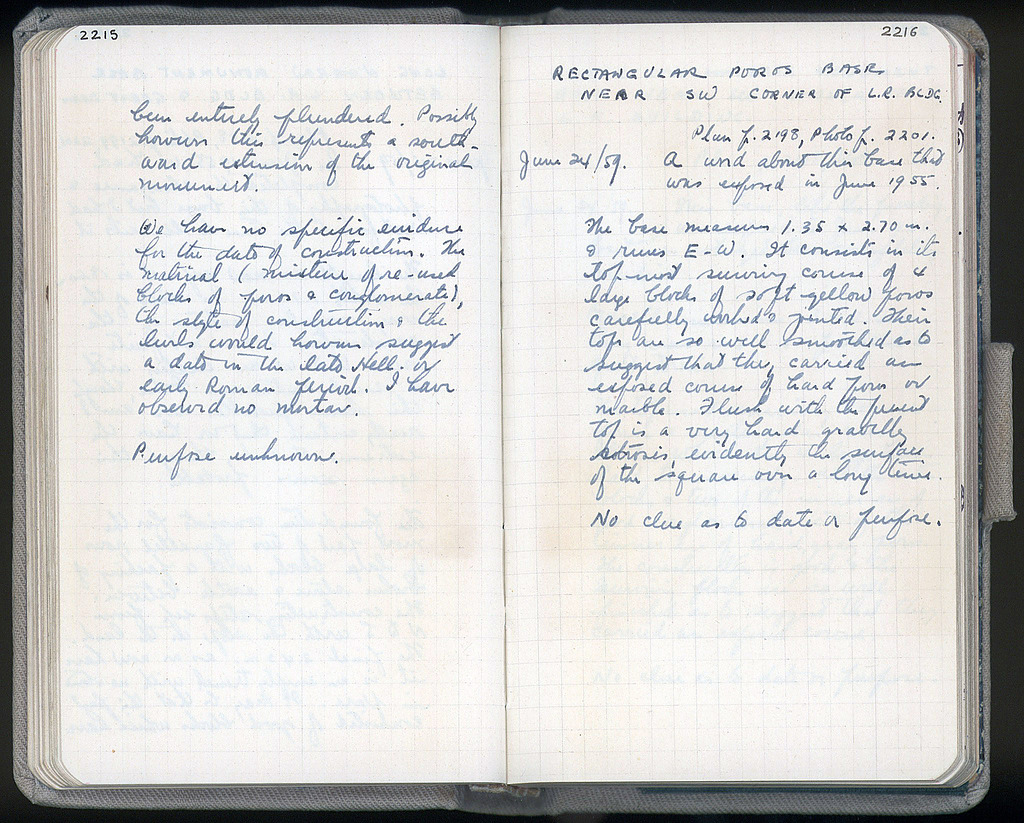 2215
been entirely plundered. Possibly
however this represents a south-
ward extension of the original
monument.
We have no specific evidence
for the date of construction. The
material (mixture of re-used
blocks of poros & conglomerate),
the style of construction & the
levels would however suggest
a date in the late Hell. or
early Roman period. I have
observed no mortar.
Purpose unknown.
2216
RECTANGULAR POROS BASE
NEAR SW CORNER OF L.R. BLDG.
Plan p. 2198, Photo p. 2201.
June 24/59. A word about this base that
was exposed in June 1955.
The base measures 1.35 x 2.70 m.
& runs E-W. It consists in its
top-most surviving course of 4
large blocks of soft yellow poros
carefully worked & jointed. Their
tops are so well smoothed as to
suggest that they carried an
exposed course of hard poros or
marble. Flush with the present
top is a very hard gravelly
strosis, evidently the surface
of the square over a long time.
No clue as to date or purpose.